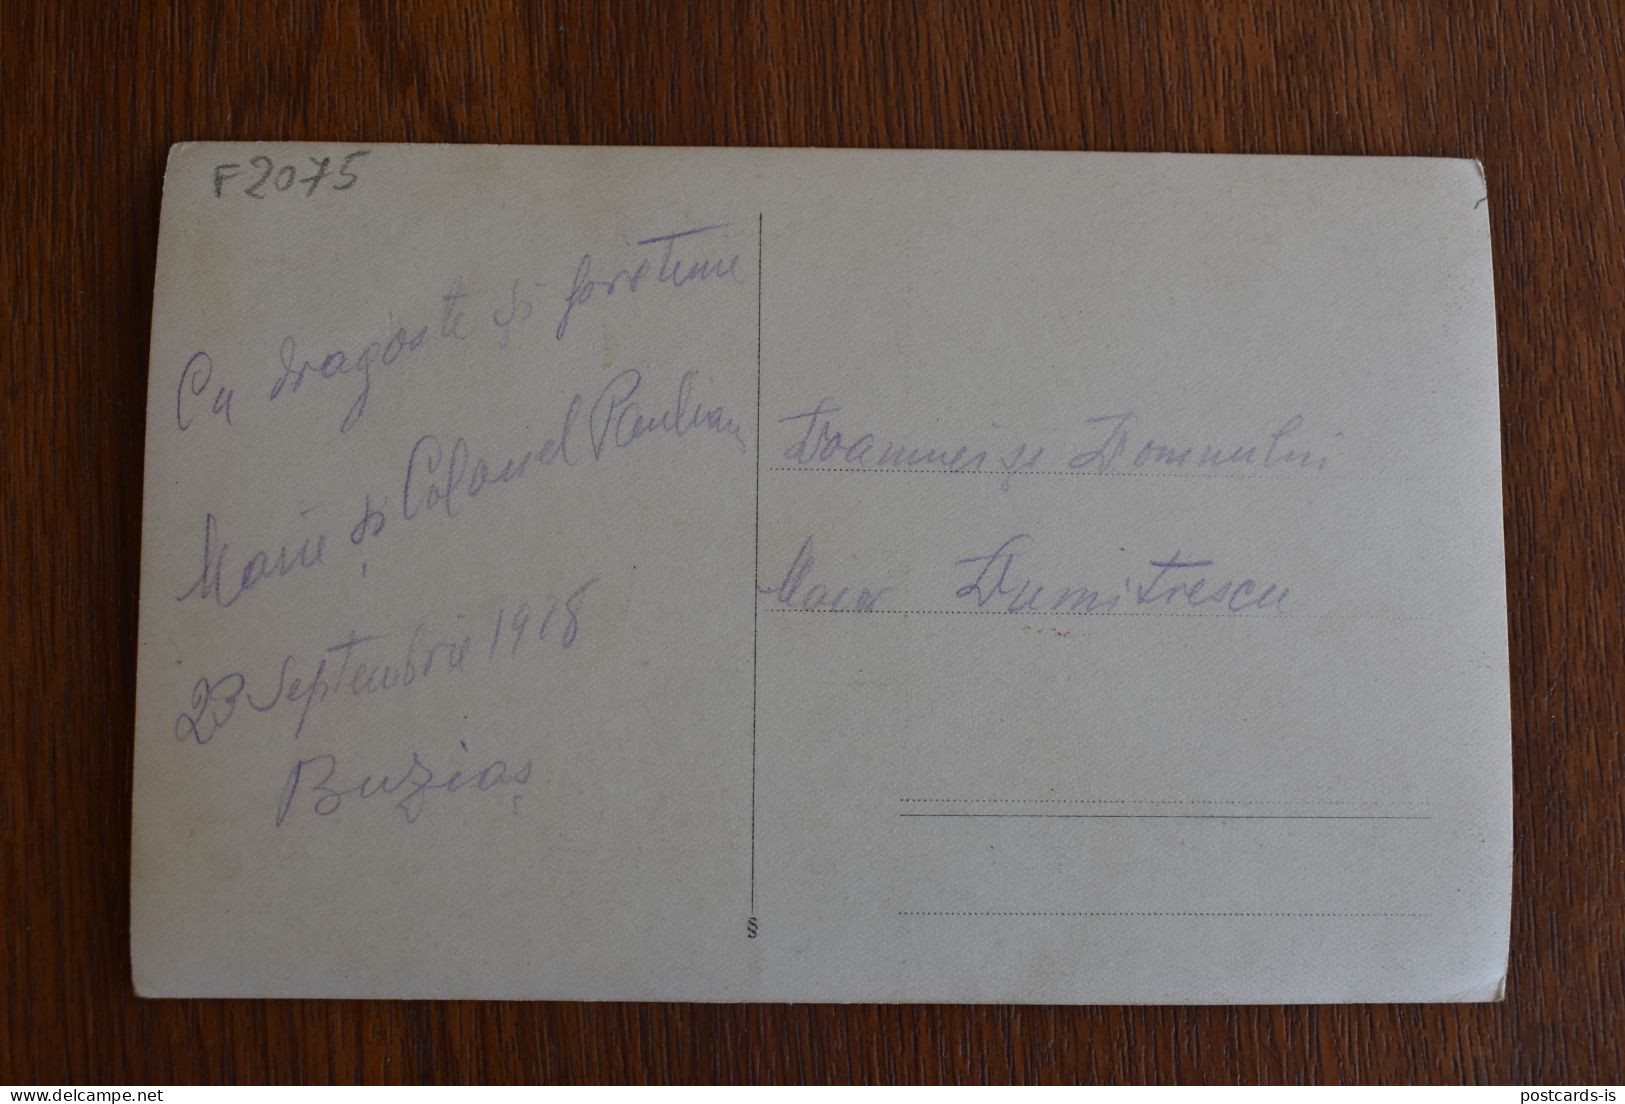 F2075
Cu dragoste și
Marie și Colonel Paulian
23 Septembrie 1918
Buziaș
Doamnei și Domnului
Maior Dumitrescu
§
delcampe.net
postcards-is